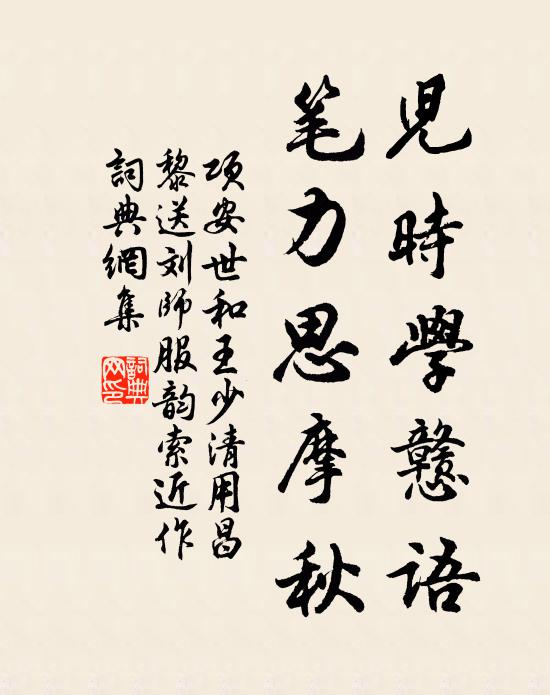 児時學戇語
笔力思摩秋
项安世和王少清用昌
黎送刘師服韵索近作
詞典網集
詞典网印